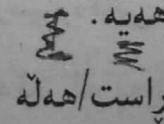 هەیە.
راست/هەڵە